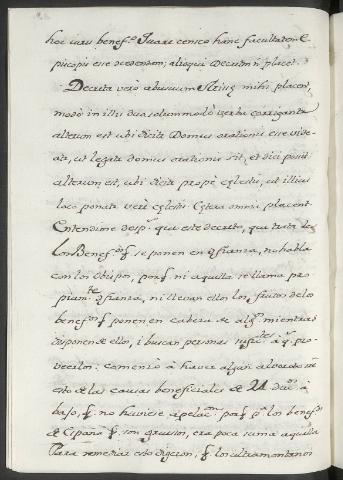 hoc iure benef.o Quare censeo hanc facultatem E
piscopis esse concedendam; alioqui decretum ñ placet.
Decreta verò abusuum Missæ mihi placent,
modò in illis duo solummodò verba corrigantur
alterum est ubi dicit Domus orationis esse vide
atr, ut legatr domus orationis sit, et dici possit
alterum est, ubi dicit propè cœlestis, ut illius
loco ponatr verè cœlestis. Cætera omnia placent.
Entendime desp.s que este decreto, que trata de
los Benef.os q se ponen en confianza, no habla
con los obispos, porq ni aquella se llama pro
piam.te confianza, ni llevan ellos los frutos de los
benef.os q ponen en cabeza de alg.o mientras
disponen de ellos, i buscan personas sufic.tes à q.n pro
veerlos: comenzò à haver algun alboroto en
esto de las causas beneficiales de 24 duc.s à
baxo, q no huviese apelac.on porq p.a los benef.os
de España q son gruesos, era poca suma aquella
Para remediar esto dixeron, q los ultramontanos